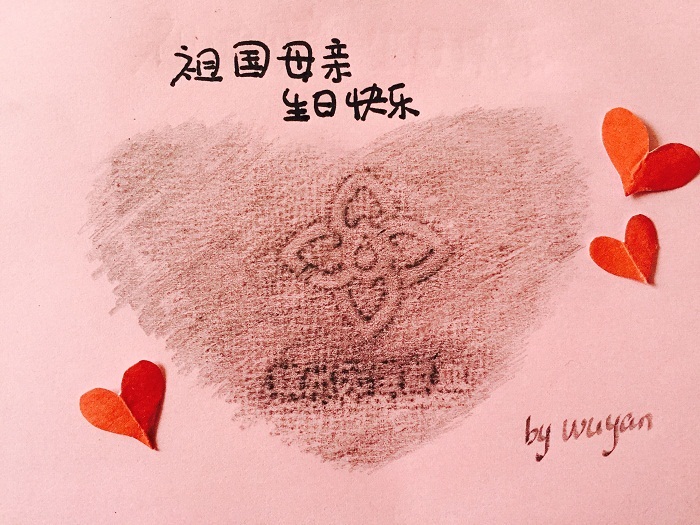 祖国母亲
生日快乐
by wuyan